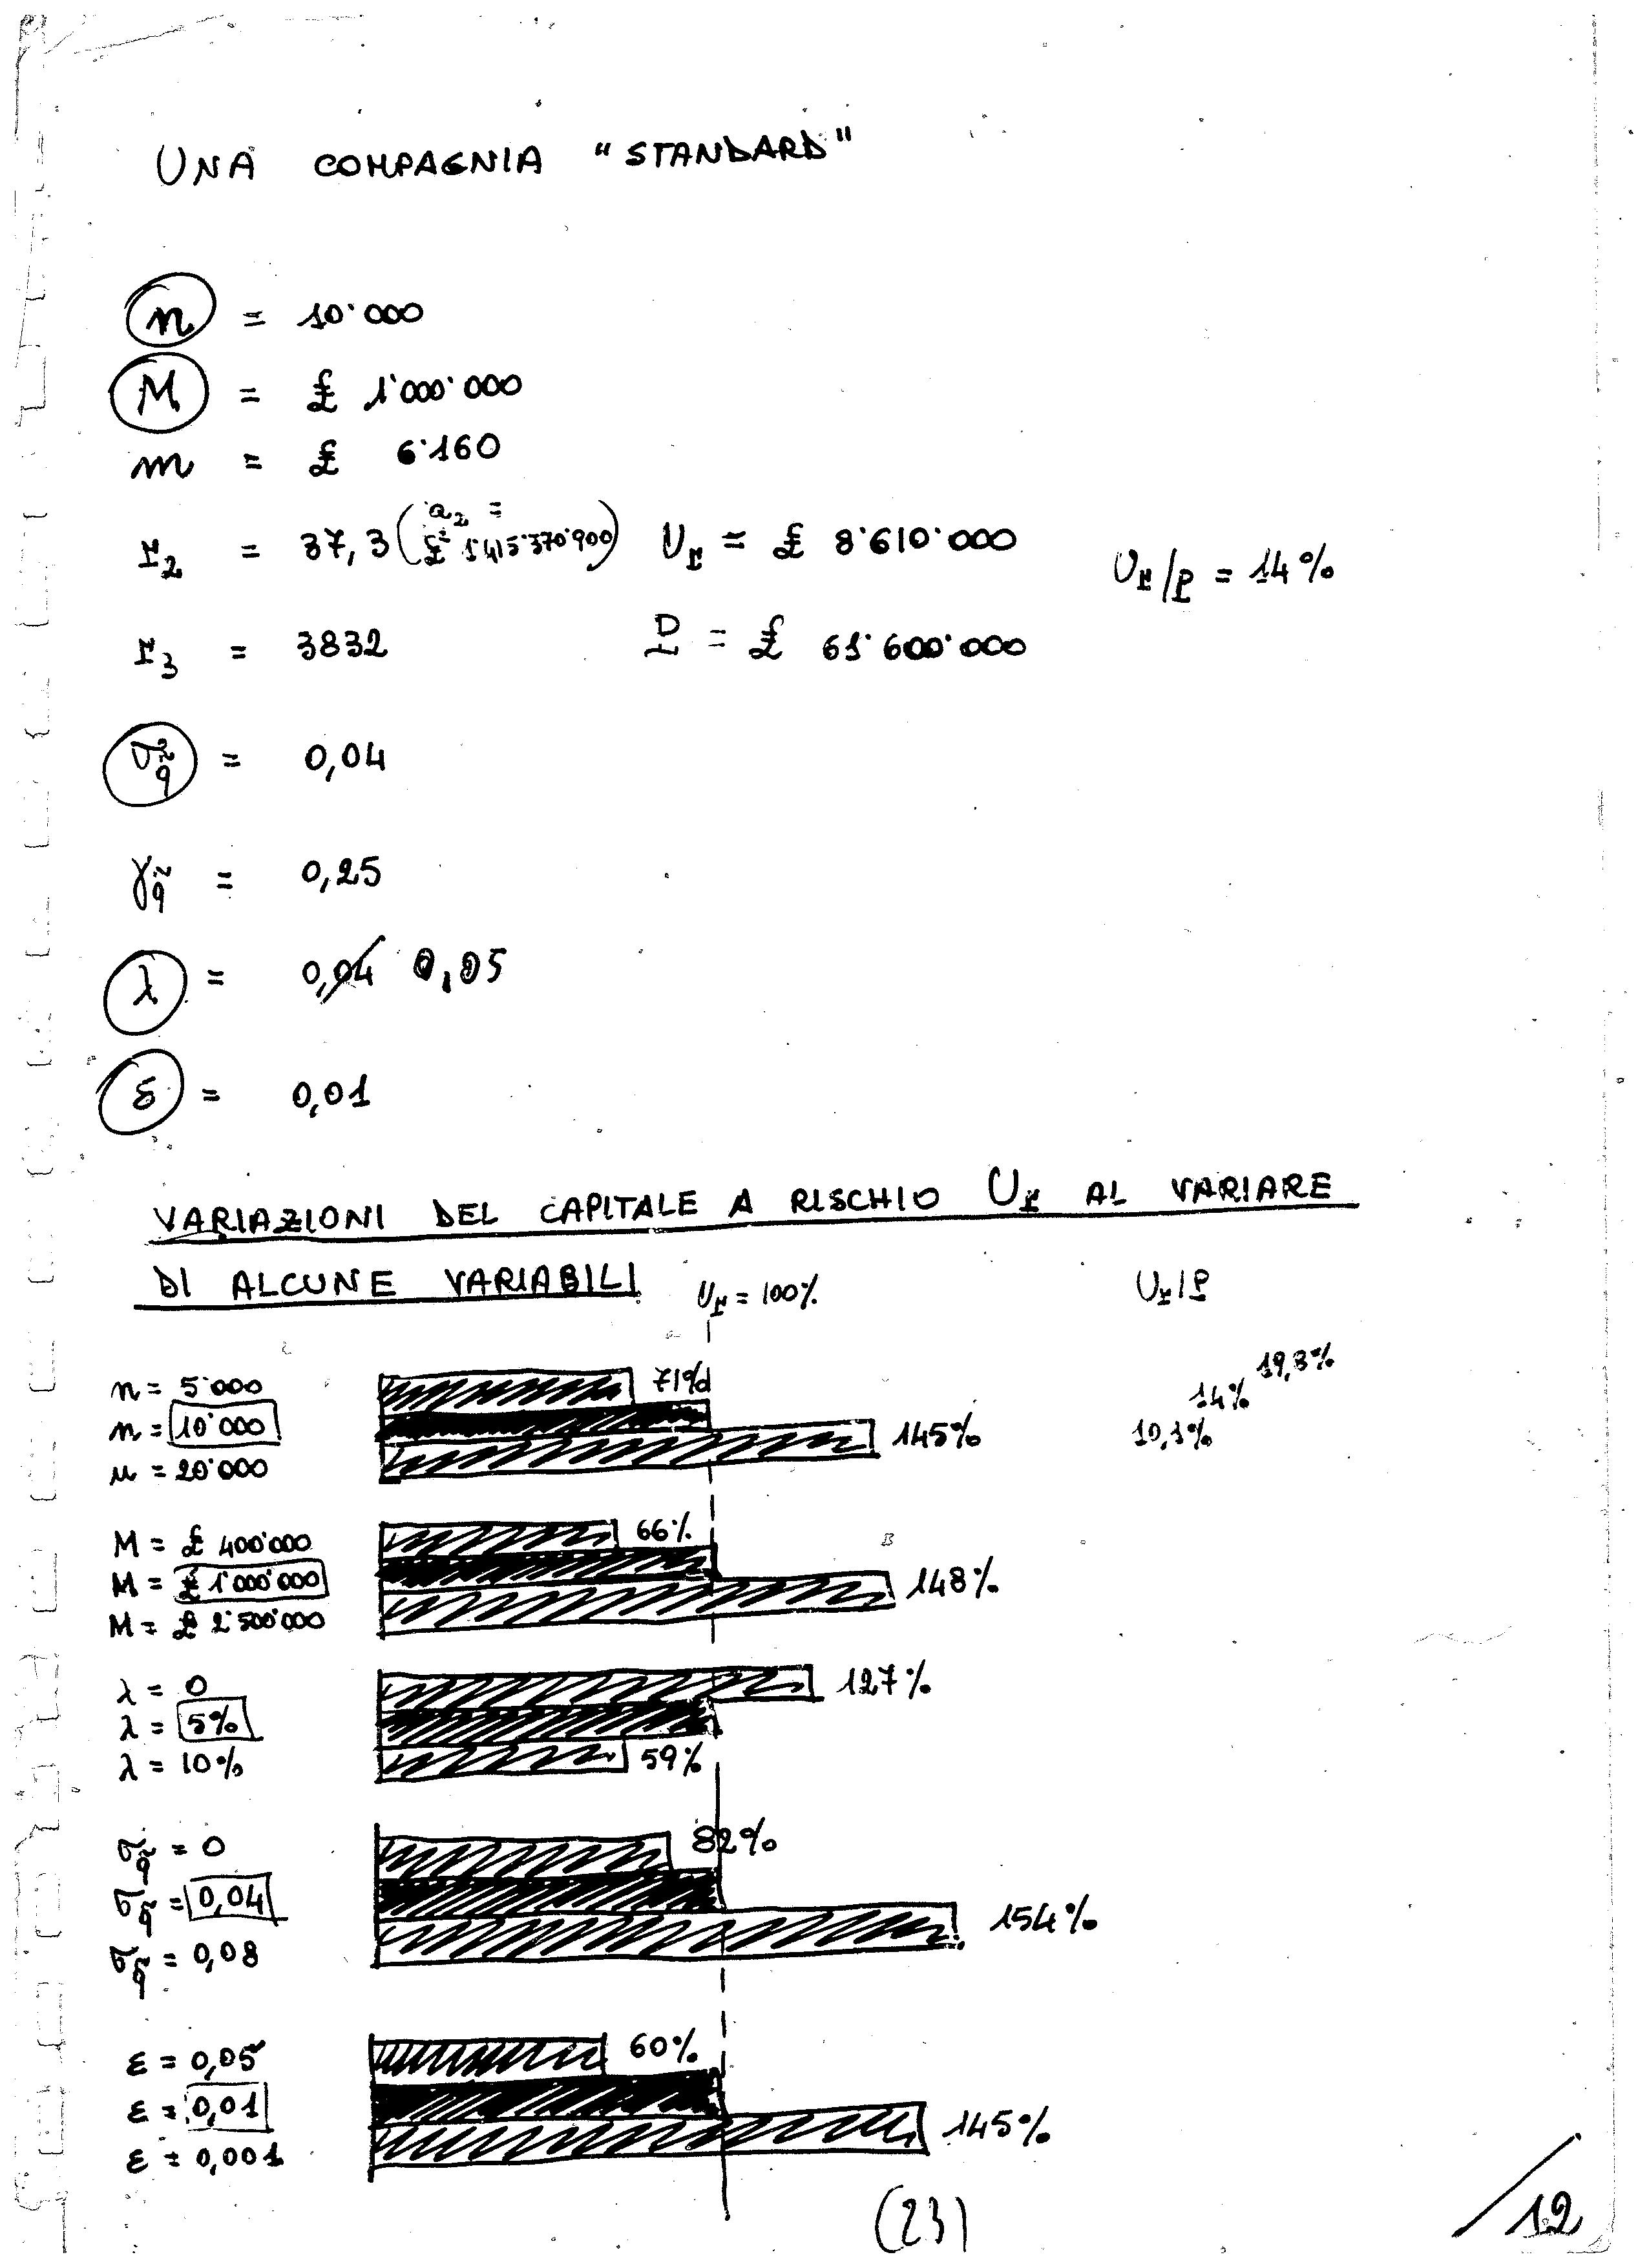 UNA COMPAGNIA "STANDARD"
n = 10˙000
M = £ 1˙000˙000
m = £ 6˙160
r₂ = 37,3 (a₂ = £² 1˙415˙370˙900) Uᵣ = £ 8˙610˙000 Uᵣ/P = 14%
r₃ = 3832 P = £ 61˙600˙000
σ_q̃ = 0,04
γ_q̃ = 0,25
λ = 0,04 0,05
ε = 0,01
VARIAZIONI DEL CAPITALE A RISCHIO Uᵣ AL VARIARE
DI ALCUNE VARIABILI Uᵣ = 100% Uᵣ/P
n = 5˙000 71% 19,8%
n = 10˙000 14%
n = 20˙000 145% 10,1%
M = £ 400˙000 66%
M = £ 1˙000˙000
M = £ 2˙500˙000 148%
λ = 0 127%
λ = 5%
λ = 10% 59%
σ_q̃ = 0 82%
σ_q̃ = 0,04
σ_q̃ = 0,08 154%
ε = 0,05 60%
ε = 0,01
ε = 0,001 145%
(23)
/12